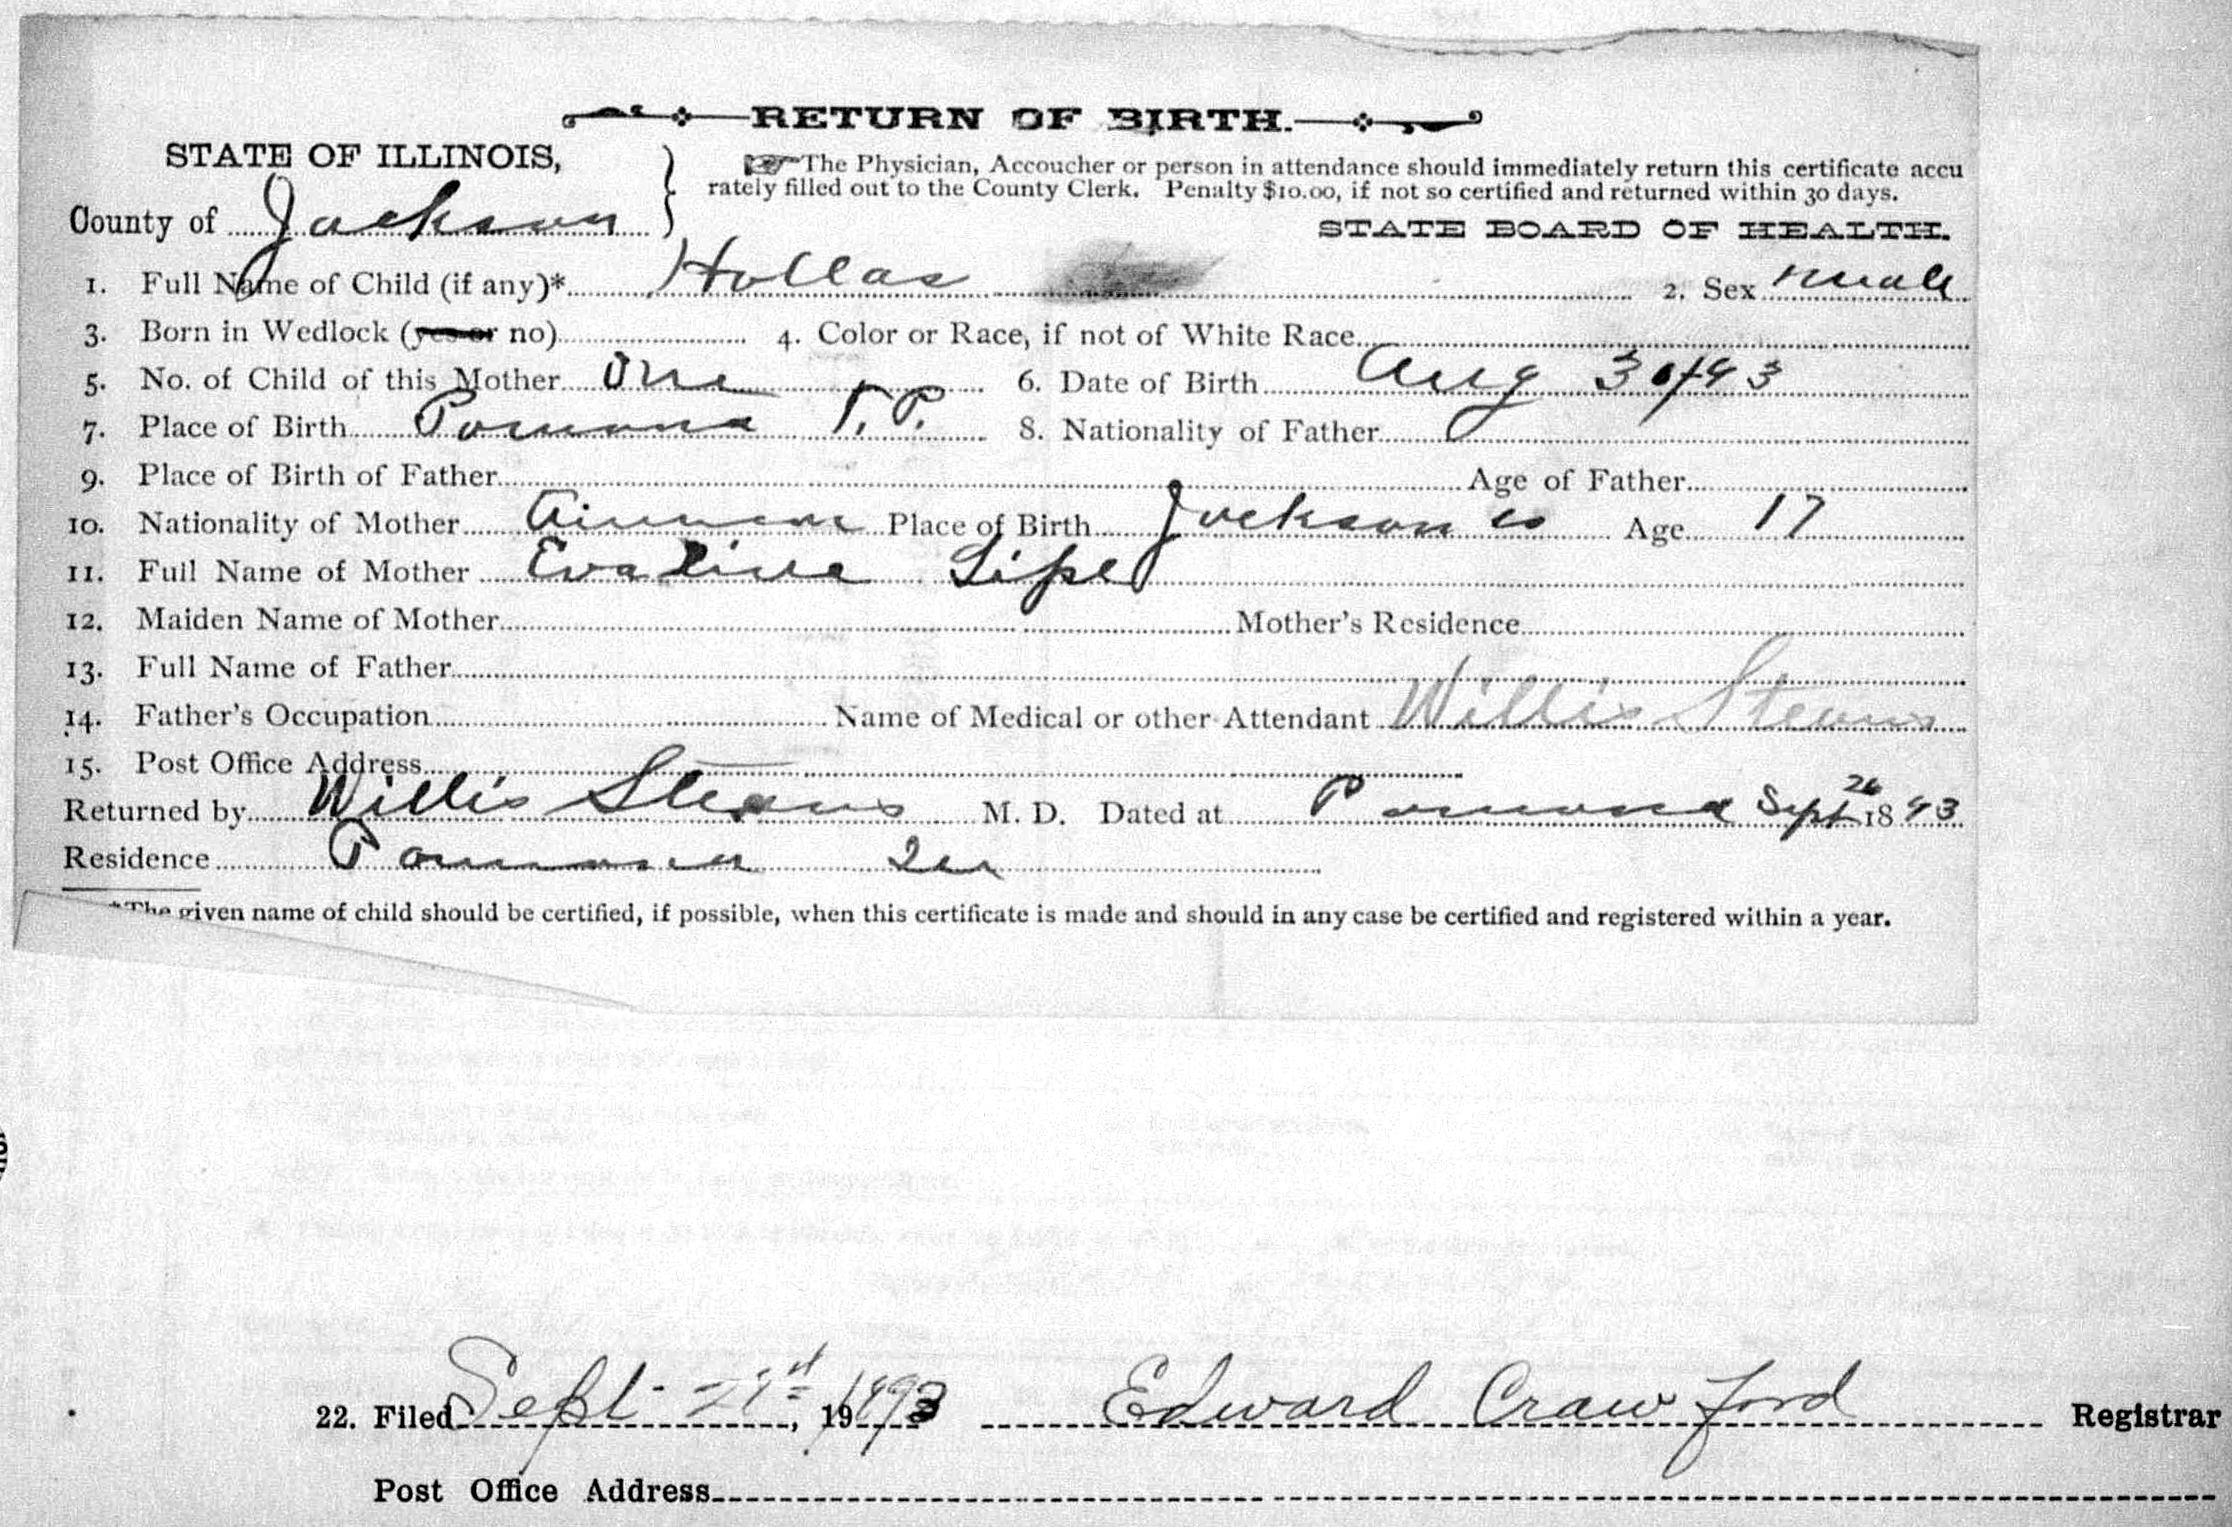 RETURN OF BIRTH.
STATE OF ILLINOIS,
County of Jackson
The Physician, Accoucher or person in attendance should immediately return this certificate accu
rately filled out to the County Clerk. Penalty $10.00, if not so certified and returned within 30 days.
STATE BOARD OF HEALTH.
1. Full Name of Child (if any)* Hollas 2. Sex male
3. Born in Wedlock (yes or no) 4. Color or Race, if not of White Race
5. No. of Child of this Mother One 6. Date of Birth Aug 30/93
7. Place of Birth Pomona T.P. 8. Nationality of Father
9. Place of Birth of Father Age of Father
10. Nationality of Mother Place of Birth Jackson co Age 17
11. Full Name of Mother Evaline Lipe
12. Maiden Name of Mother Mother's Residence
13. Full Name of Father
14. Father's Occupation Name of Medical or other Attendant Willis Stearns
15. Post Office Address
Returned by Willis Stearns M. D. Dated at Pomona Sept 26 1893
Residence Pomona
*The given name of child should be certified, if possible, when this certificate is made and should in any case be certified and registered within a year.
22. Filed Sept , 19 1893 Edward Crawford Registrar
Post Office Address